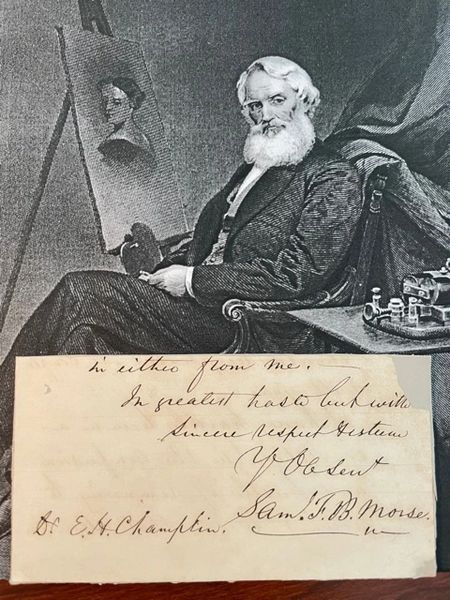 in either from me. –
In greatest haste but with
sincere respect & esteem
Yr Ob Sert
Saml. F. B. Morse.
Dr E. H. Champlin.